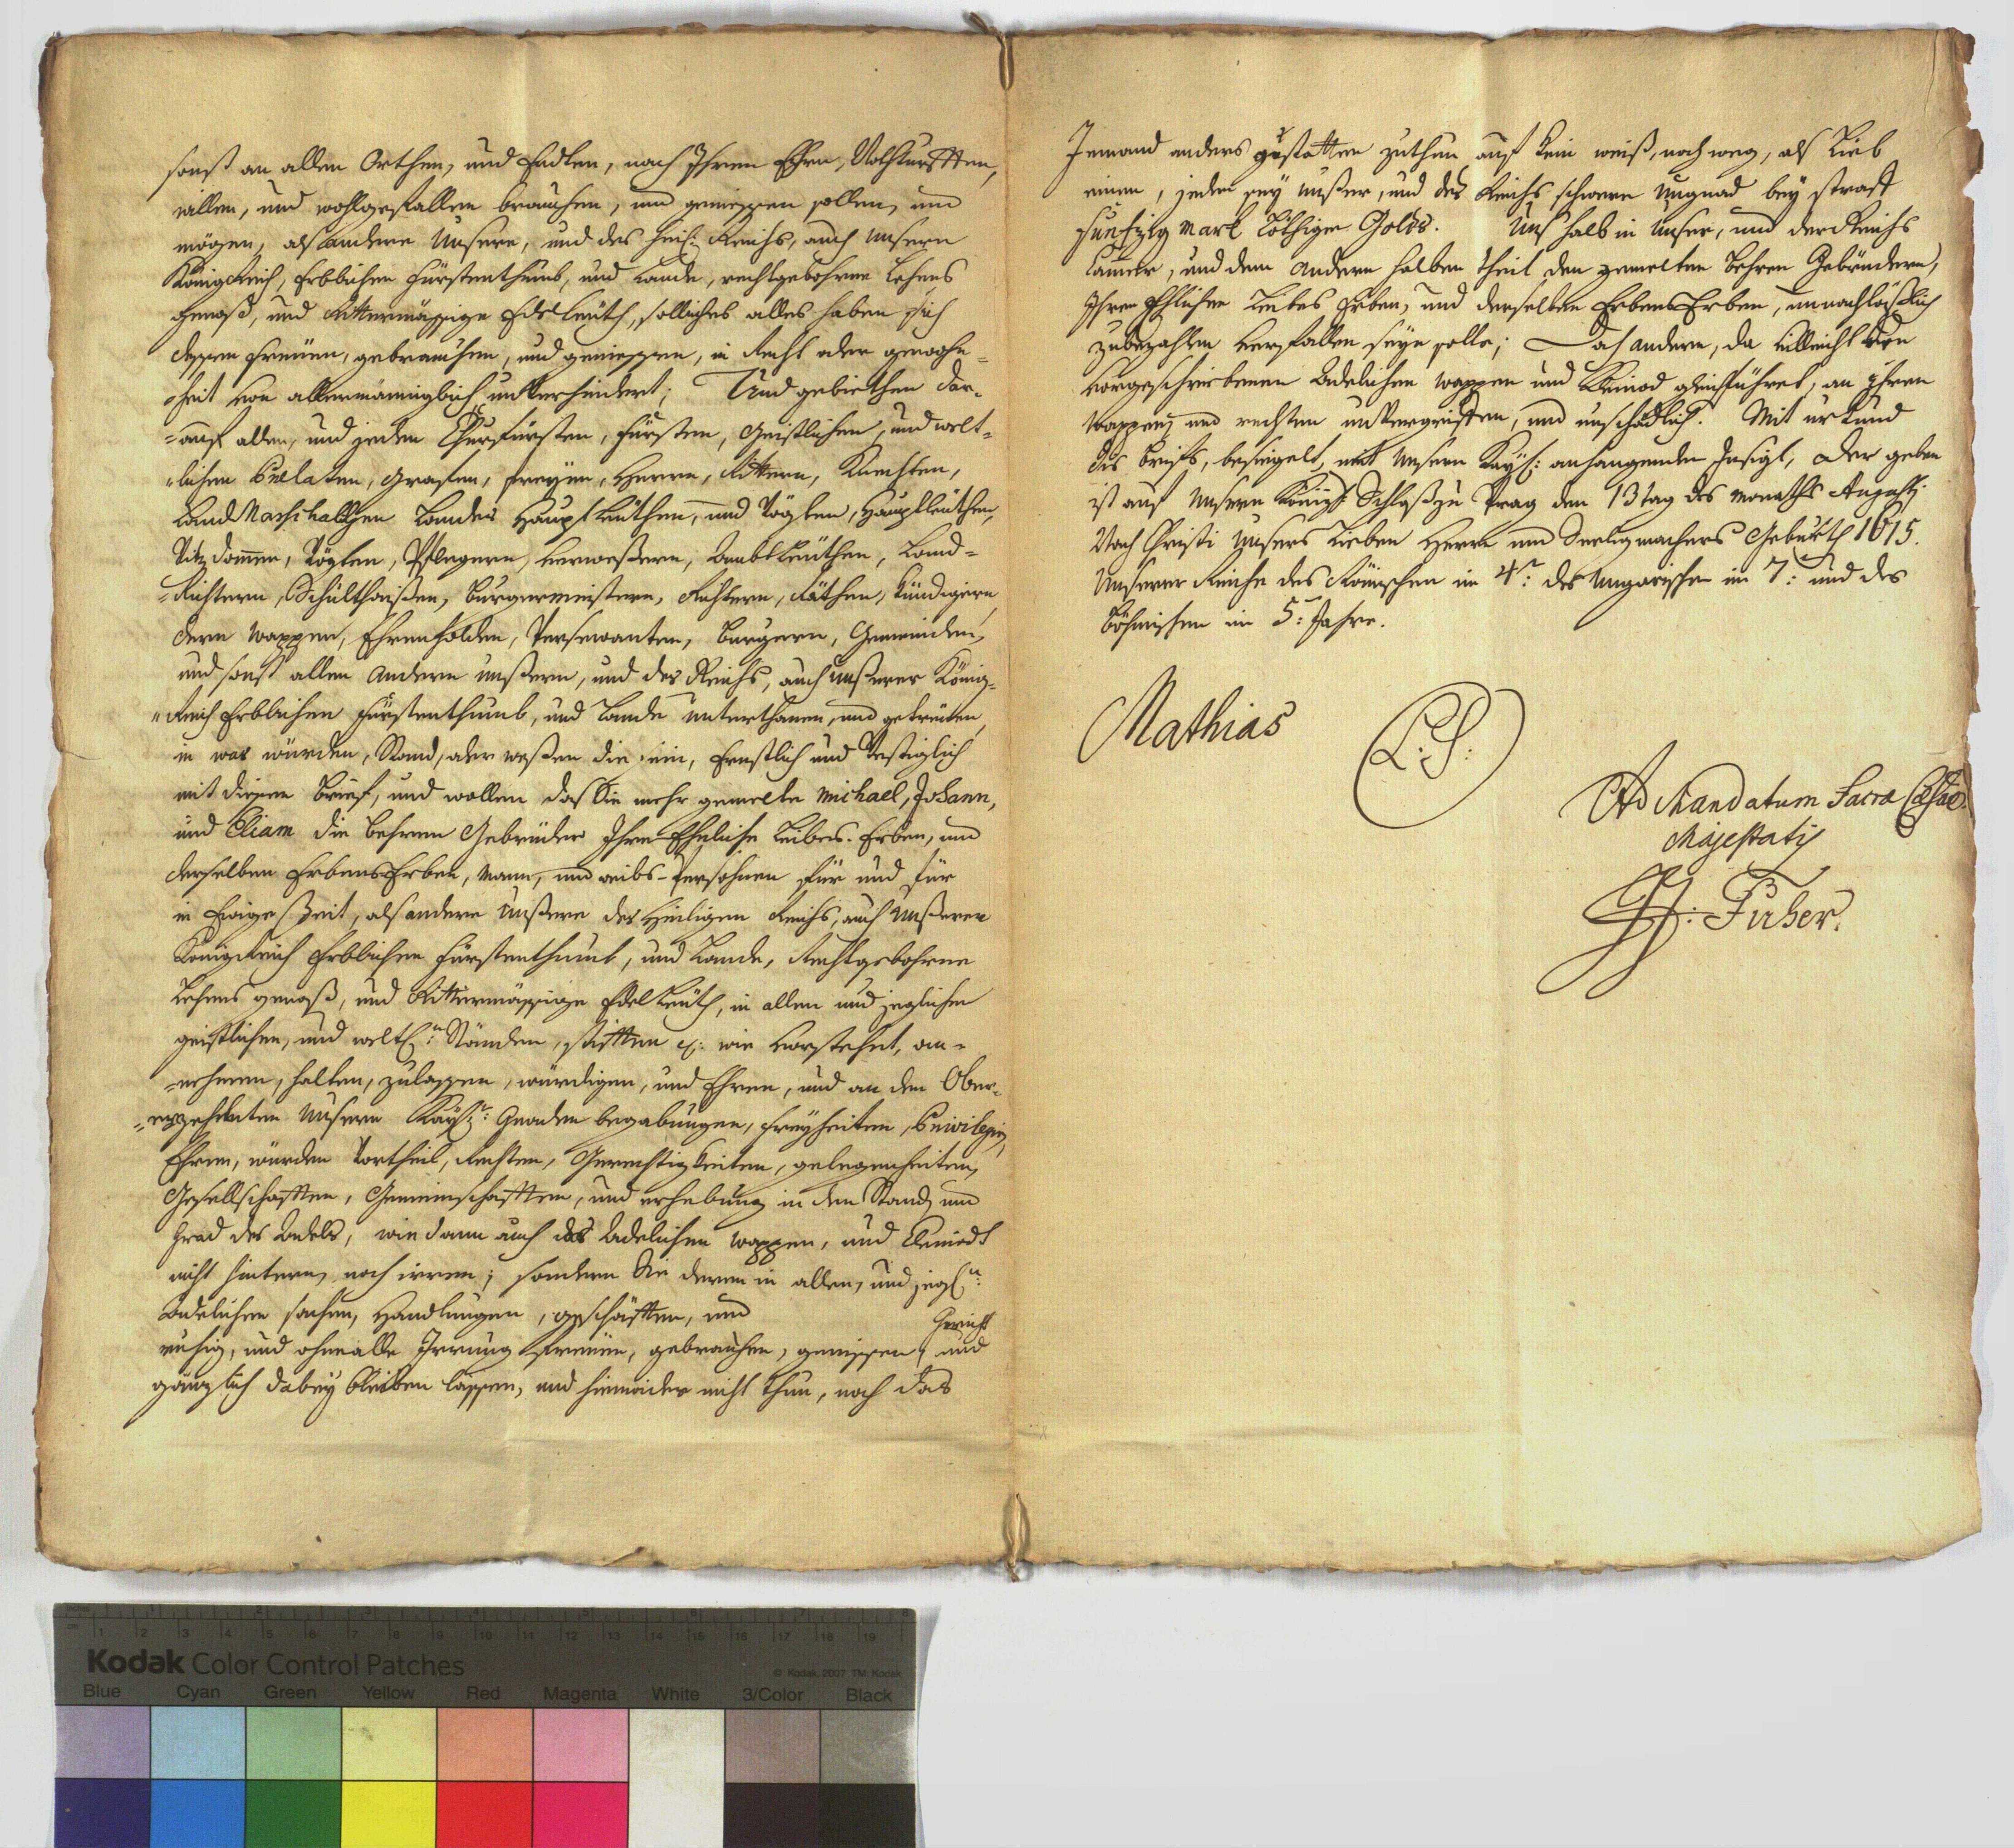 sonst an allen Orthen, und Enden, nach Ihren Ehrn, Nothturfften,
willen, und wohlgefallen brauchen, und geniessen sollen, und
mögen, als andere Unsere, und des heil: Reichs, auch Unsern
KönigReich, Erblichen Fürstenthumb, und Lande, rechtgebohrne Lehens
genoß, und Rittermässige EdelLeüth, solliches alles haben sich
dessen freüen, gebrauchen, und geniessen, in Recht oder gewohn=
=heit von allermänniglich unverhindert; Und gebiethen dar=
=auf allen, und jeden Churfürsten, Fürsten, Geistlichen, und welt=
=lichen Prelaten, Grafen, Freyen, Herrn, Rittern, Knechten,
LandMarschallhen Landes HauptLeüthen, und Vögten, Haubtleüthen,
Vitzdomen, Vögten, Pflegern, Verweßern, AmbtLeüthen, Land=
=Richtern, Schulthaißen, Burgermeistern, Richtern, Räthen, Kündigern
deren Wappen, Ehrenholden, Persevanten, Burgern, Gemeinden,
und sonst allen andern Unßern, und des Reichs, auch Unßerer König=
=Reich Erblichen Fürstenthumb, und Lande Unterthanen, und getreüen,
in was würden, Stand, oder weßen die sein, Ernstlich und Vestiglich
mit diesen Brief, und wollen das Sie mehr gemelte Michael, Johann,
und Eliam die Behren Gebrüder Ihre Eheliche Leibes-Erben, und
derselben ErbensErben, Mann, und weibs-Persohnen für und für
in Ewige Zeit, als andere Unßere des Heiligen Reichs, auch Unßerer
KönigReich Erblichen Fürstenthumb, und Lande, Rechtgebohrne
Lehens genoß, und Rittermässige EdelLeüth, in allen und jeglichen
geistlichen, und weltl:n Ständen, stifften etc: wie vorstehet, an=
=nehmen, halten, zulassen, würdigen, und Ehren, und an den Ober=
=erzehlten Unsern Kaysl:n Gnaden begabungen, Freyheiten, Privilegien
Ehren, würden Vortheil, Rechten, Gerechtigkeiten, gelegenheiten,
Gesellschafften, Gemeinschafften, und erhebung in den Stand und
Grad des Adels, wie dann auch des Adelichen Wappen, und Cleinodt
nicht hintern, noch irren; sondern Sie deren in allen, und jegl:n
Adelichen sachen, Handlungen, geschäfften, und
Gericht
ruhig, und ohne alle Irrung freüen, gebrauchen, geniessen, und
gänzlich dabey bleiben lassen, und hierwider nicht thun, noch das
Jemand anders gestatten zuthun auf kein weiß, noch weg, als Lieb
einen, jeden sey Unßer, und des Reichs schwere Ungnad bey straff
fünfzig Mark Löthigen Golds. Uns halb in Unser, und des Reichs
Camer, und den andern halben theil den gemelten Behren Gebrüdern,
Ihren Ehlichen Leibes Erben, und derselben ErbensErben, unnachläßlich
zubezahlen verfallen seyn solle; Doch andern, da villeicht den
vorgeschriebenen Adelichen Wappen und Kleinod gleichführet, an ihren
Wappen, und rechten unvergriffen, und unschädlich. Mit urkund
dis Briefs, besiegelt mit Unsern Kayl: anhangenden Insigl, der geben
ist auf Unsern Königl: Schloß zu Prag den 13 tag des Monaths Augusti
Nach Christi Unsers Lieben Herrn und Seeligmachers Geburth 1615.
Unserer Reiche des Römischen im 4t: des Ungarischen im 7: und des
Böhmischen im 5: Jahre.
Mathias
L:S:
Ad Mandatum Sacræ Cæsæ
Majestatis
Fuher.